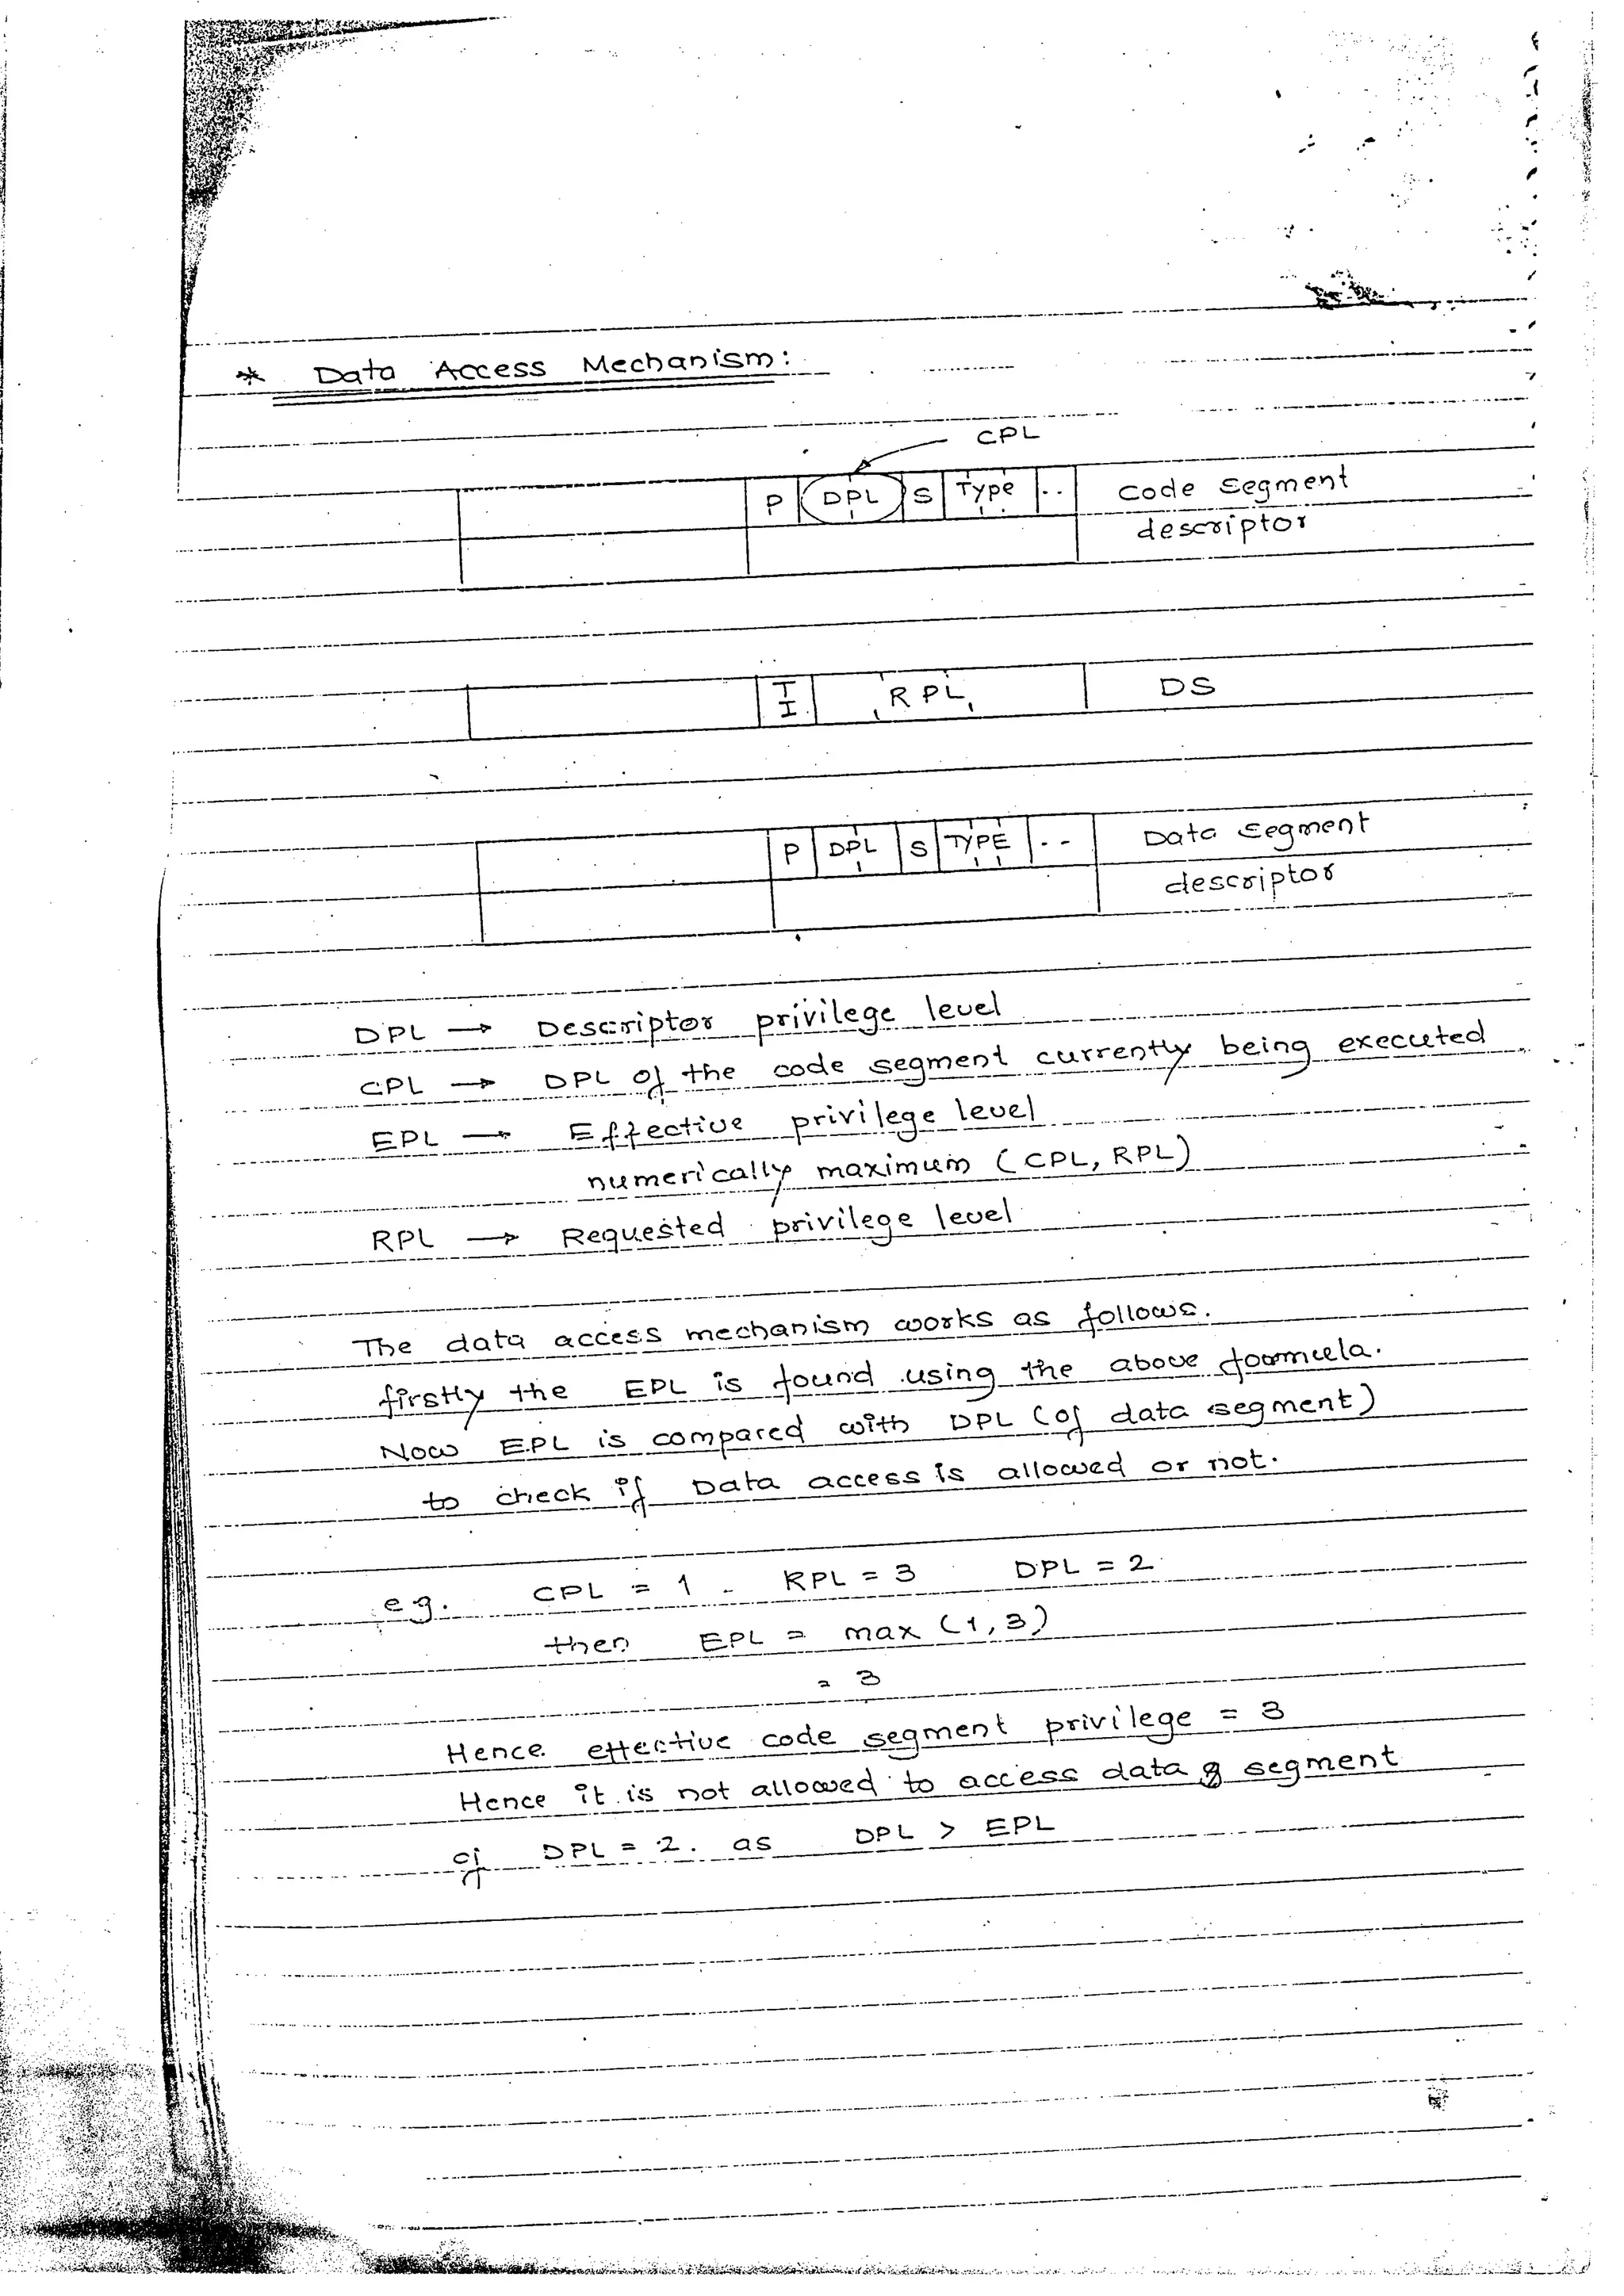 * Data Access Mechanism:
CPL
P DPL S Type .. Code Segment
descriptor
TI RPL DS
P DPL S TYPE -- Data Segment
descriptor
DPL → Descriptor privilege level
CPL → DPL of the code segment currently being executed
EPL → Effective privilege level
numerically maximum (CPL, RPL)
RPL → Requested privilege level
The data access mechanism works as follows.
firstly the EPL is found using the above formula.
Now EPL is compared with DPL (of data segment)
to check if Data access is allowed or not.
eg. CPL = 1 RPL = 3 DPL = 2
then EPL = max (1,3)
= 3
Hence effective code segment privilege = 3
Hence it is not allowed to access data segment
of DPL = 2. as DPL > EPL